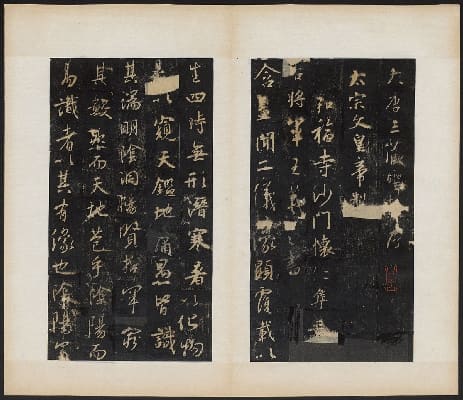 大唐三藏聖教序
太宗文皇帝製
弘福寺沙門懷仁集晉
右將軍王羲之書
含蓋聞二儀像顯覆載以
生四時無形潛寒暑以化物
是以窺天鑑地庸愚皆識
其端明陰洞陽賢哲罕窮
其數然而天地苞乎陰陽而
易識者以其有像也陰陽處